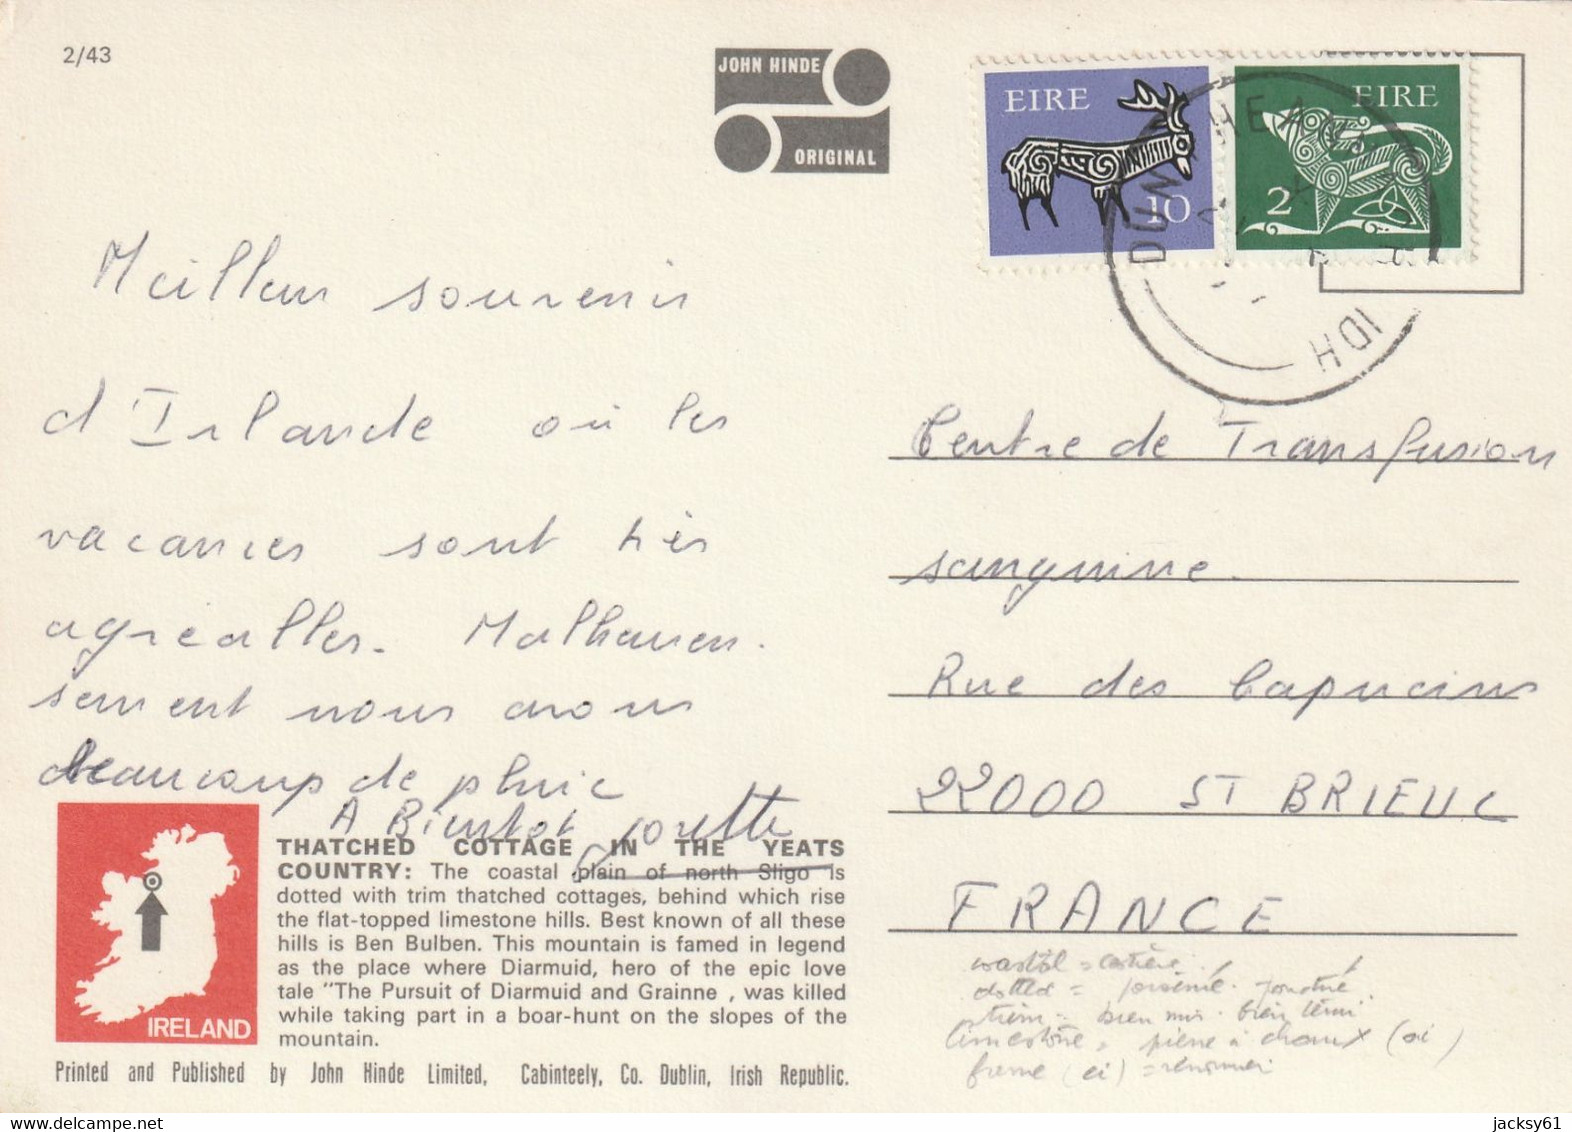 2/43
JOHN HINDE
ORIGINAL
EIRE
10
EIRE
2
Meilleur souvenir
d'Irlande où les
vacances sont très
agréalles. Malheureu.
sement nous avons
beaucoup de pluie
A Bientot
Centre de Transfusion
sanguine.
Rue des Capucins
22000 ST BRIEUC
FRANCE
THATCHED COTTAGE IN THE YEATS
COUNTRY: The coastal plain of north Sligo is
dotted with trim thatched cottages, behind which rise
the flat-topped limestone hills. Best known of all these
hills is Ben Bulben. This mountain is famed in legend
as the place where Diarmuid, hero of the epic love
tale "The Pursuit of Diarmuid and Grainne , was killed
while taking part in a boar-hunt on the slopes of the
mountain.
IRELAND
Printed and Published by John Hinde Limited, Cabinteely, Co. Dublin, Irish Republic.
coastal = côtière
dotted = parsemé. ponctué.
trim = bien mis. bien tenu
limestone = pierre à chaux (ai)
fame (ei) = renommée
jacksy61